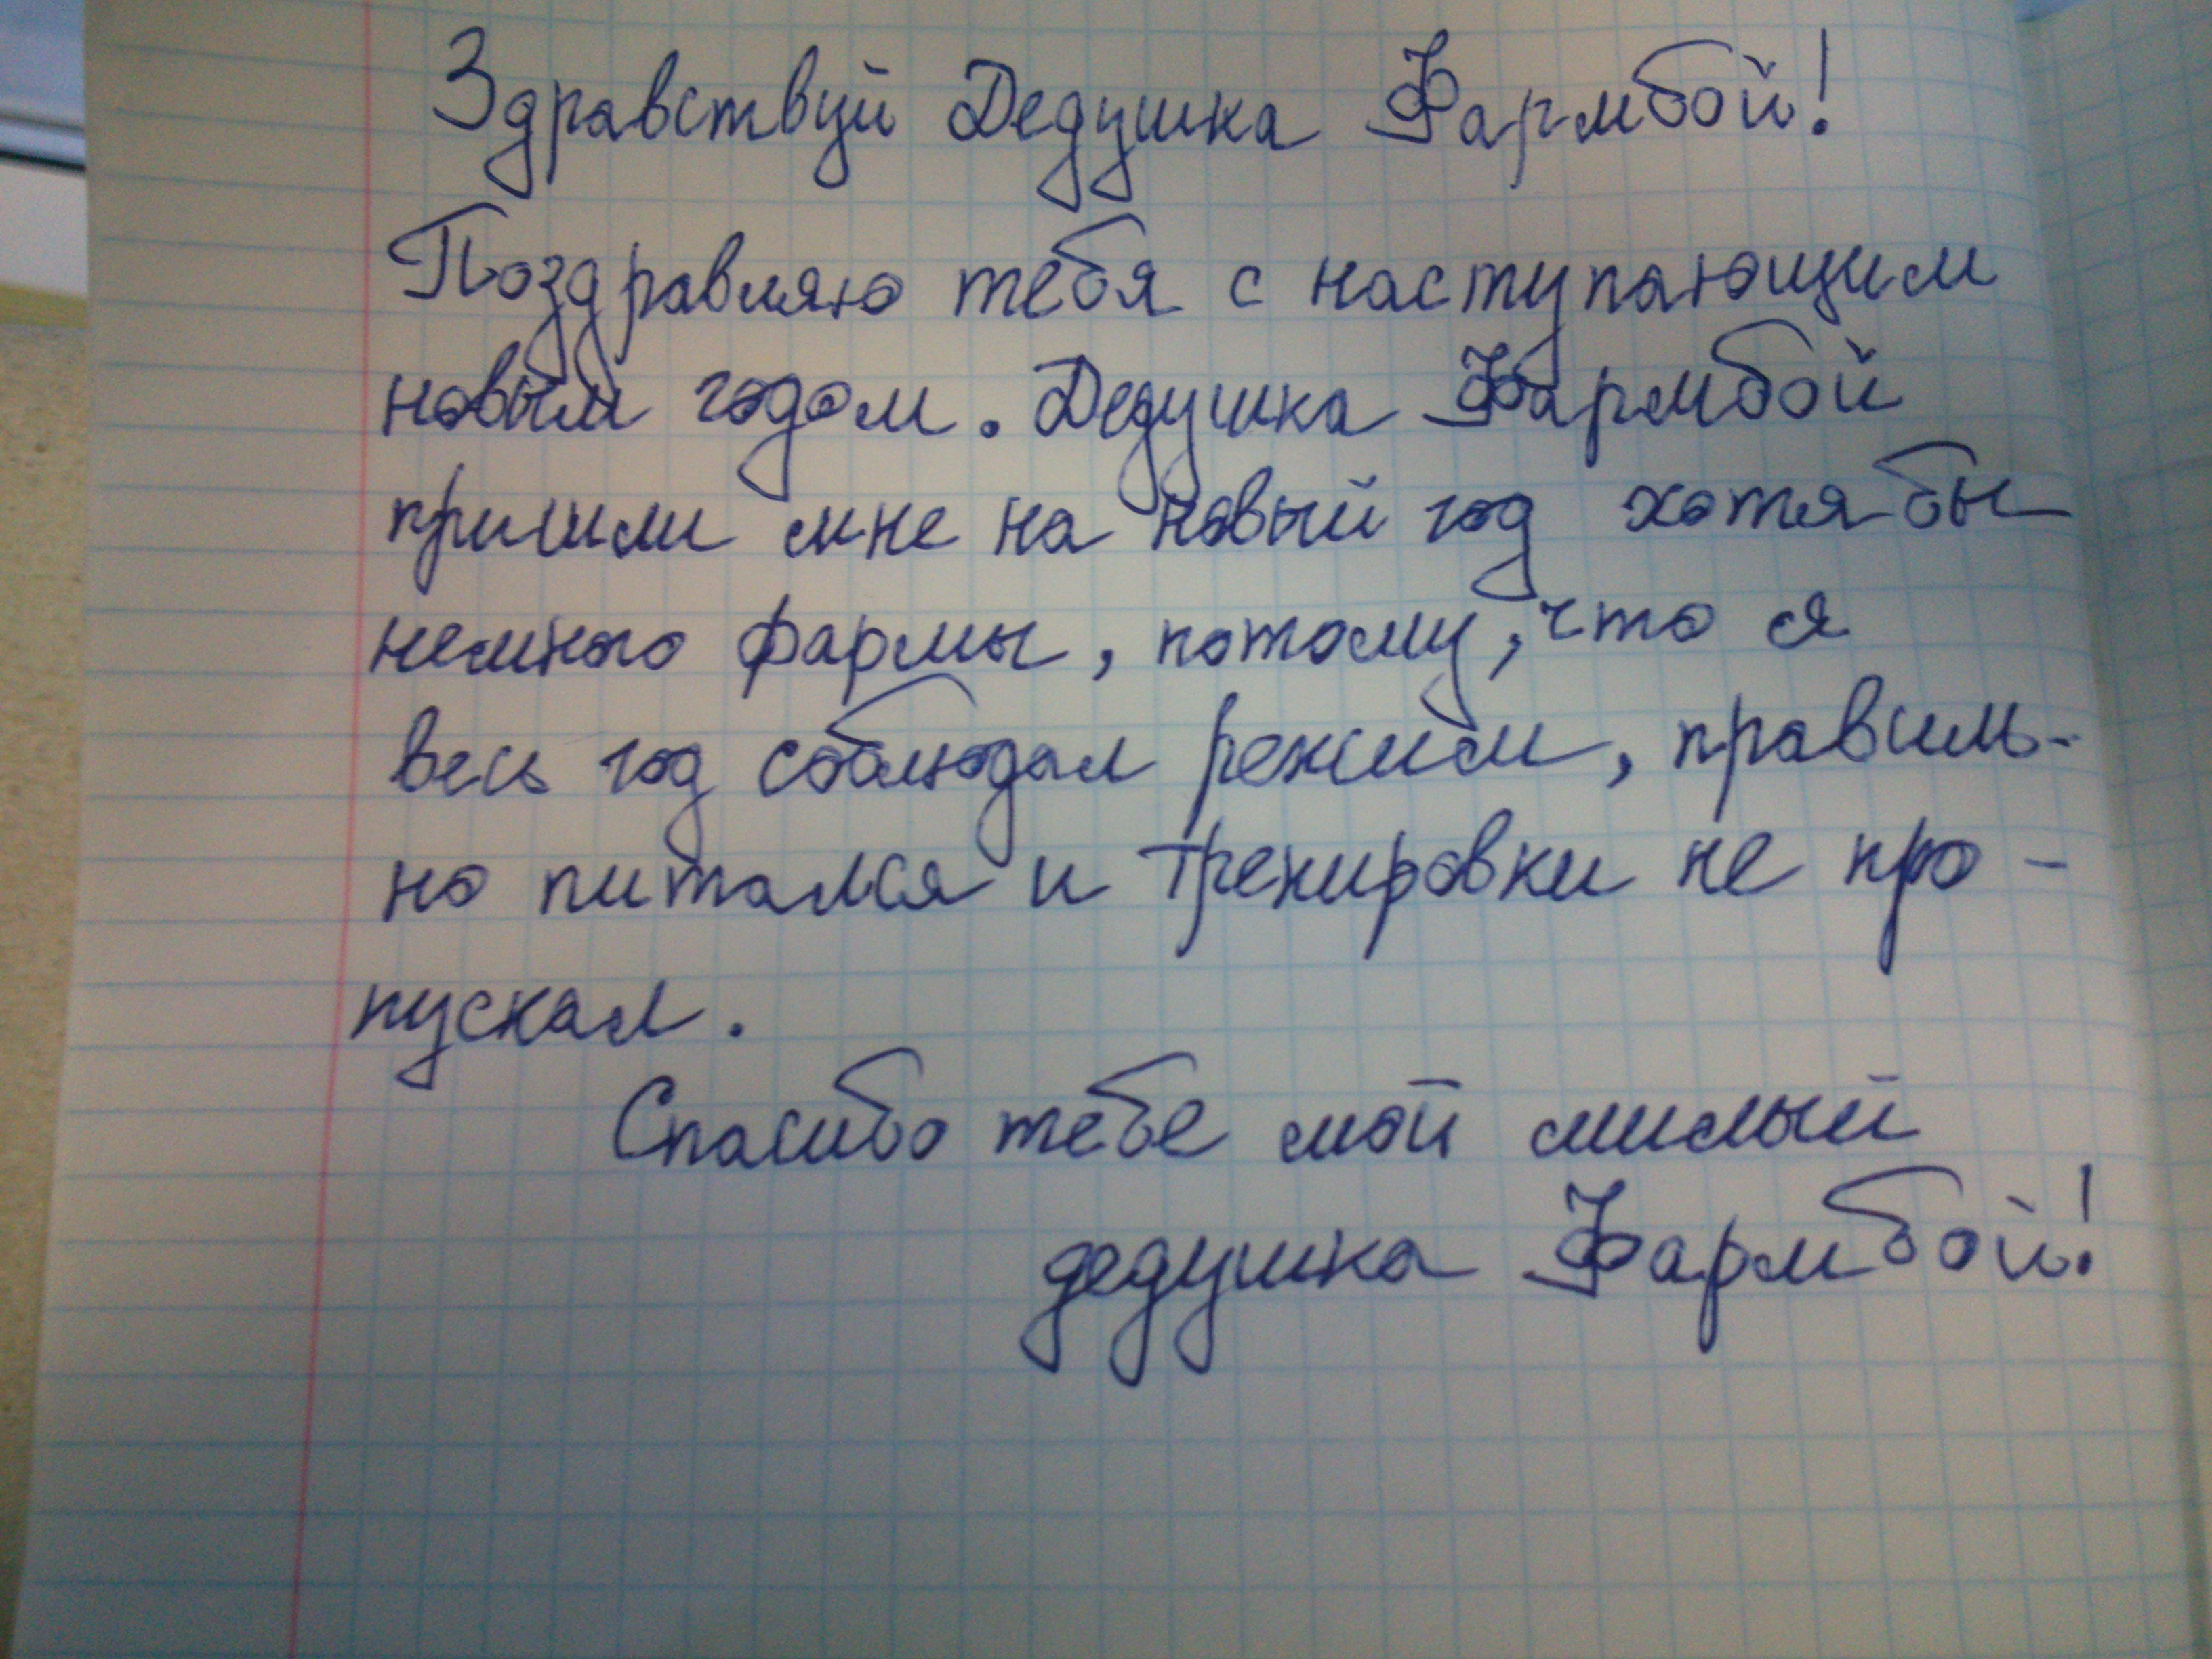 Здравствуй Дедушка Фармбой!
Поздравляю тебя с наступающим
новым годом. Дедушка Фармбой
пришли мне на новый год хотя бы
немного фармы, потому, что я
весь год соблюдал режим, правиль-
но питался и тренировки не про-
пускал.
Спасибо тебе мой милый
дедушка Фармбой!